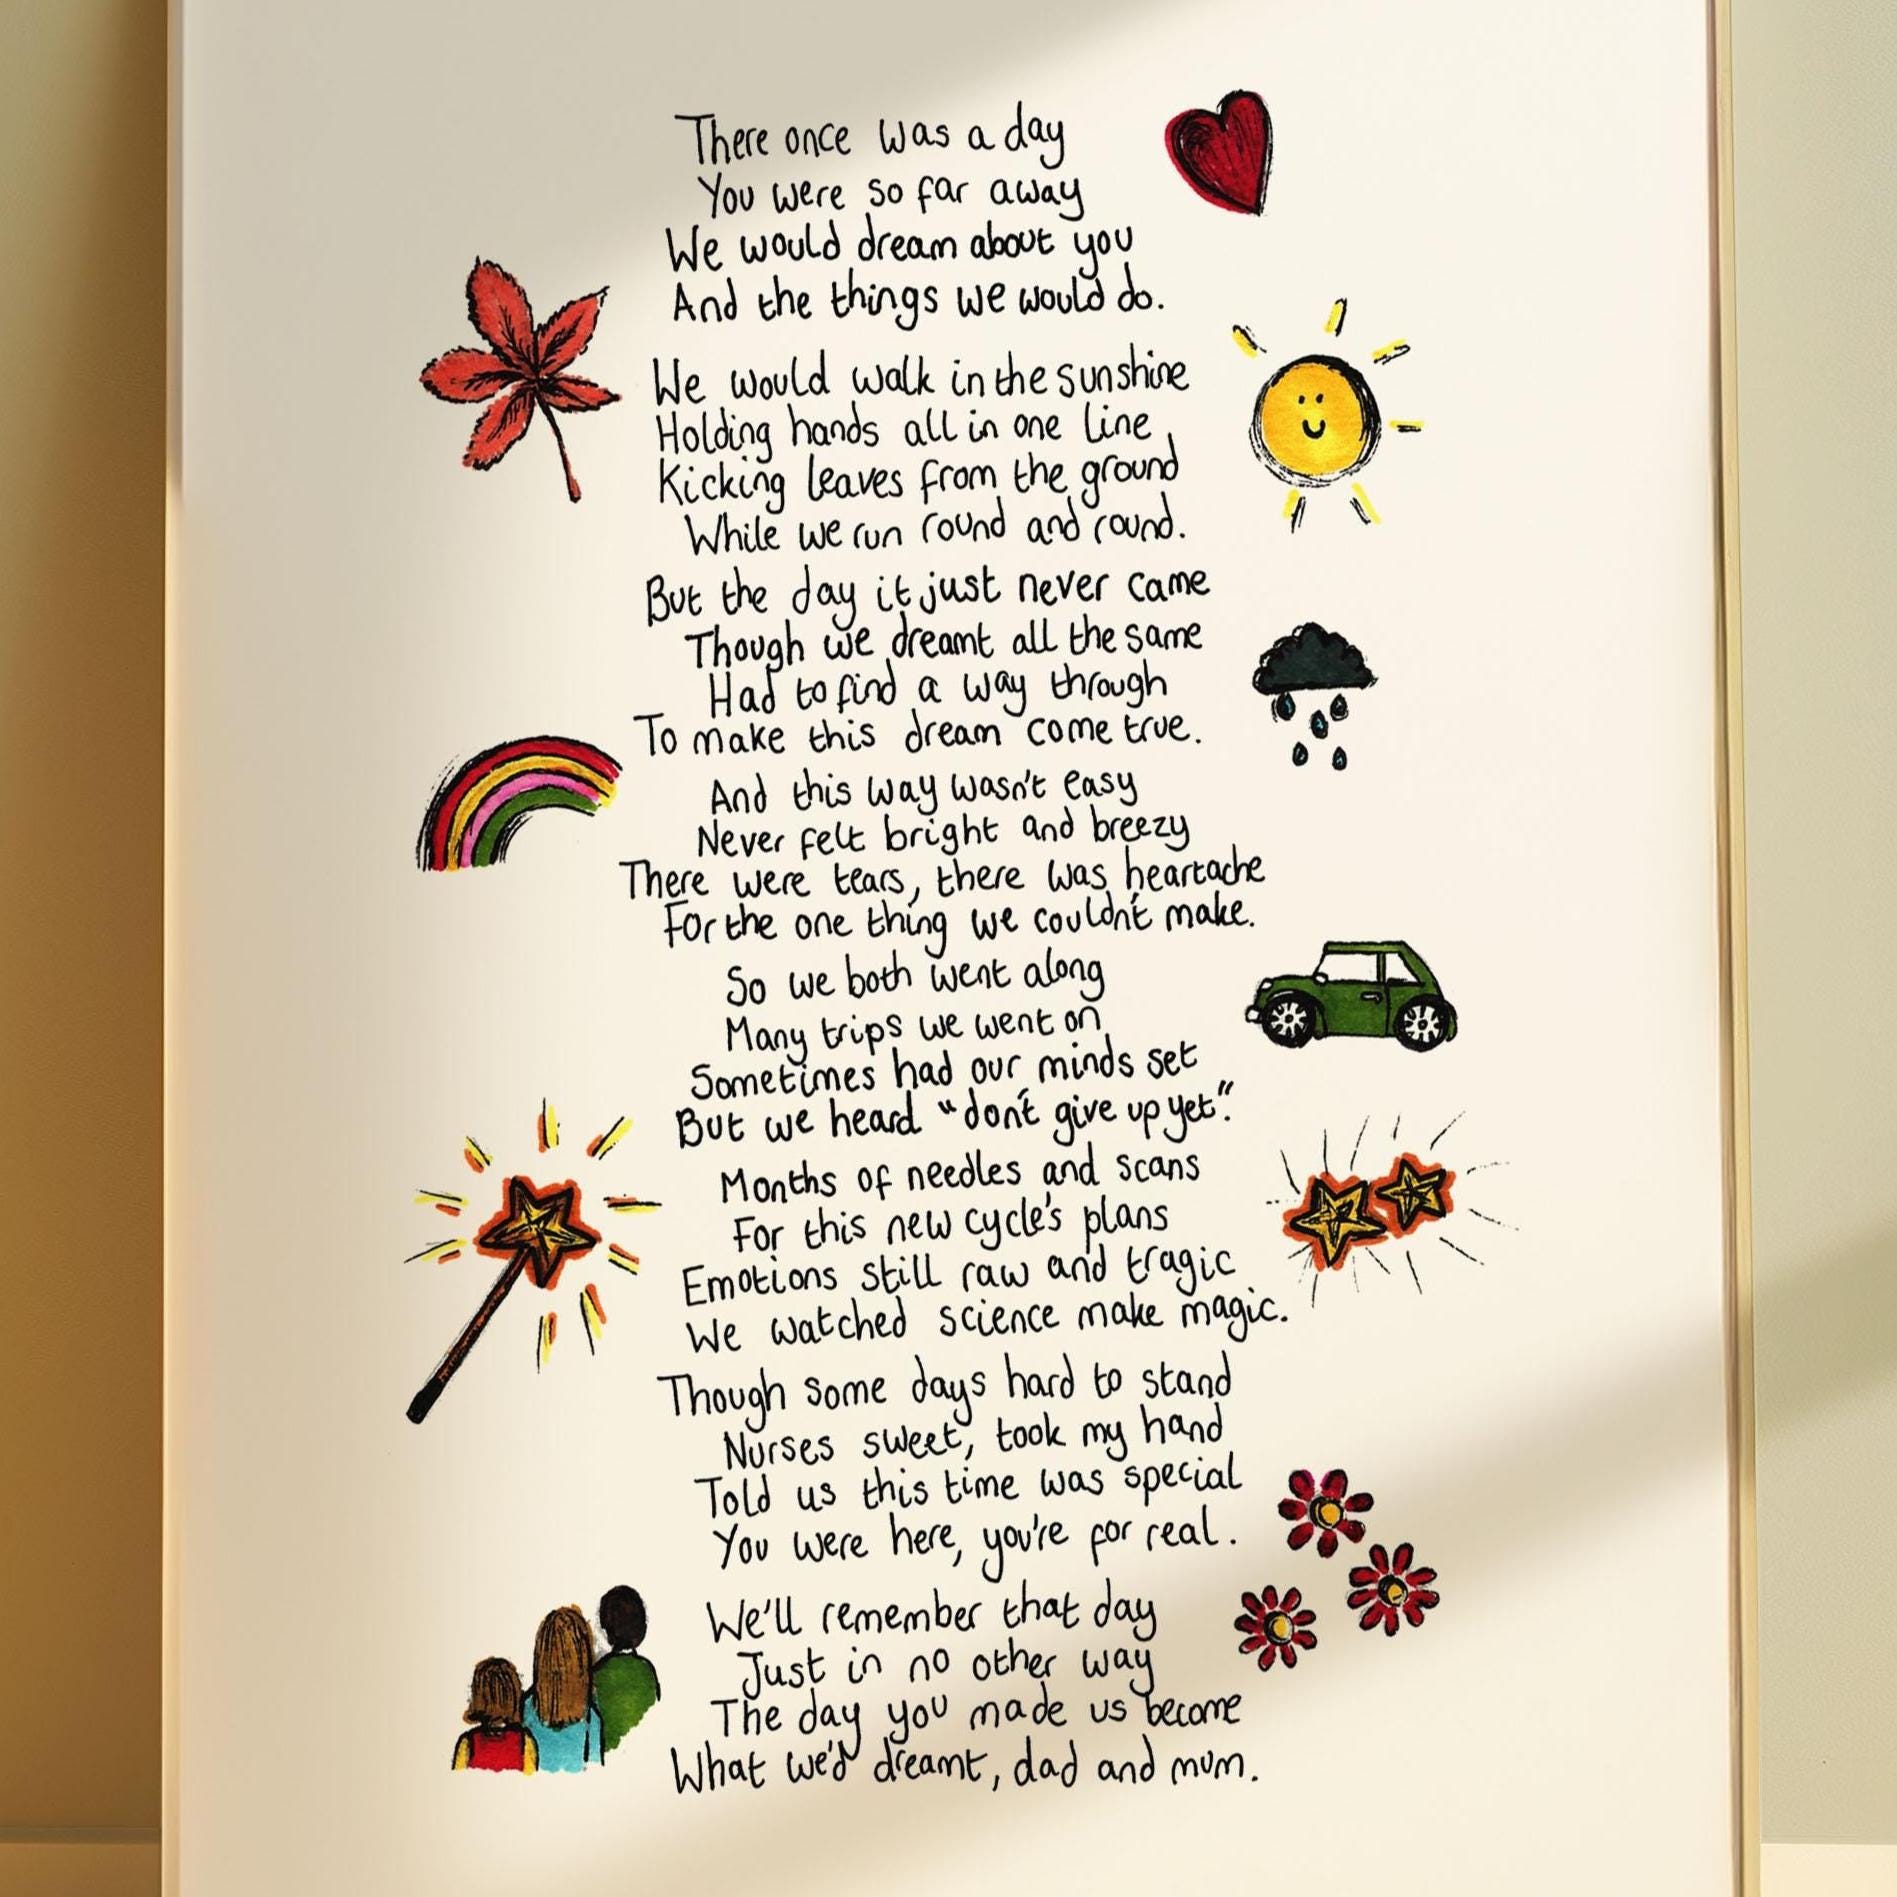 There once was a day
You were so far away
We would dream about you
And the things we would do.
We would walk in the sunshine
Holding hands all in one line
Kicking leaves from the ground
While we run round and round.
But the day it just never came
Though we dreamt all the same
Had to find a way through
To make this dream come true.
And this way wasn't easy
Never felt bright and breezy
There were tears, there was heartache
For the one thing we couldn't make.
So we both went along
Many trips we went on
Sometimes had our minds set
But we heard "don't give up yet".
Months of needles and scans
For this new cycle's plans
Emotions still raw and tragic
We watched science make magic.
Though some days hard to stand
Nurses sweet, took my hand
Told us this time was special
You were here, you're for real.
We'll remember that day
Just in no other way
The day you made us become
What we'd dreamt, dad and mum.